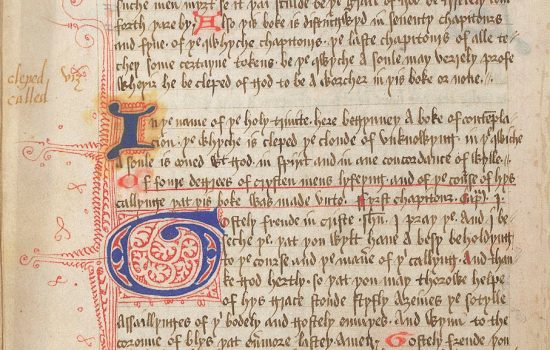 suche men myȝt se it
forth þare by. Also þis boke is distingwyd in seuenty chapitors
and fyue. of þe whyche chapitors. þe laste chapitors of alle te
chep some certayne tokens. be þe whyche a soule may veryely profe
wheþer he be cleped of god to be a worcher in þis boke or none.
cleped viȝ
called
In þe name of þe holy trinite. here begynneþ a boke of contempla
cion. þe whyche is cleped þe clowde of vnknowhyng. in þe whiche
a soule is oned wt god. in spirit and in ane concordance of wylle.
Of some degrees of crysten mens lyfeyng. and of þe course of hys
callynge þat þis boke was made vnto. Fyrst chapitors. Capm. j.
Gostely frende in criste Ihu. I pray þe. and I be
seche þe. þat þou wylt haue a besy beholdyng
to þe course and þe maner of þi callyng. And than
ke god hertly. so þat þou may thorowe helpe
of hys grace stonde styfly aȝeines þe sotylle
assaylynges of þi bodely and gostely enmyes. And wynn to the
coronne of blys þat euermore lasteþ. Amen. Gostely frende þou